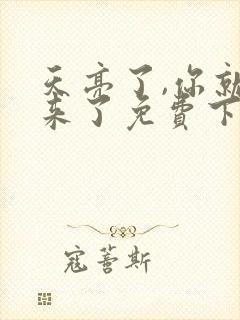 天亮了,你就
来了免費下
寇蕾斯